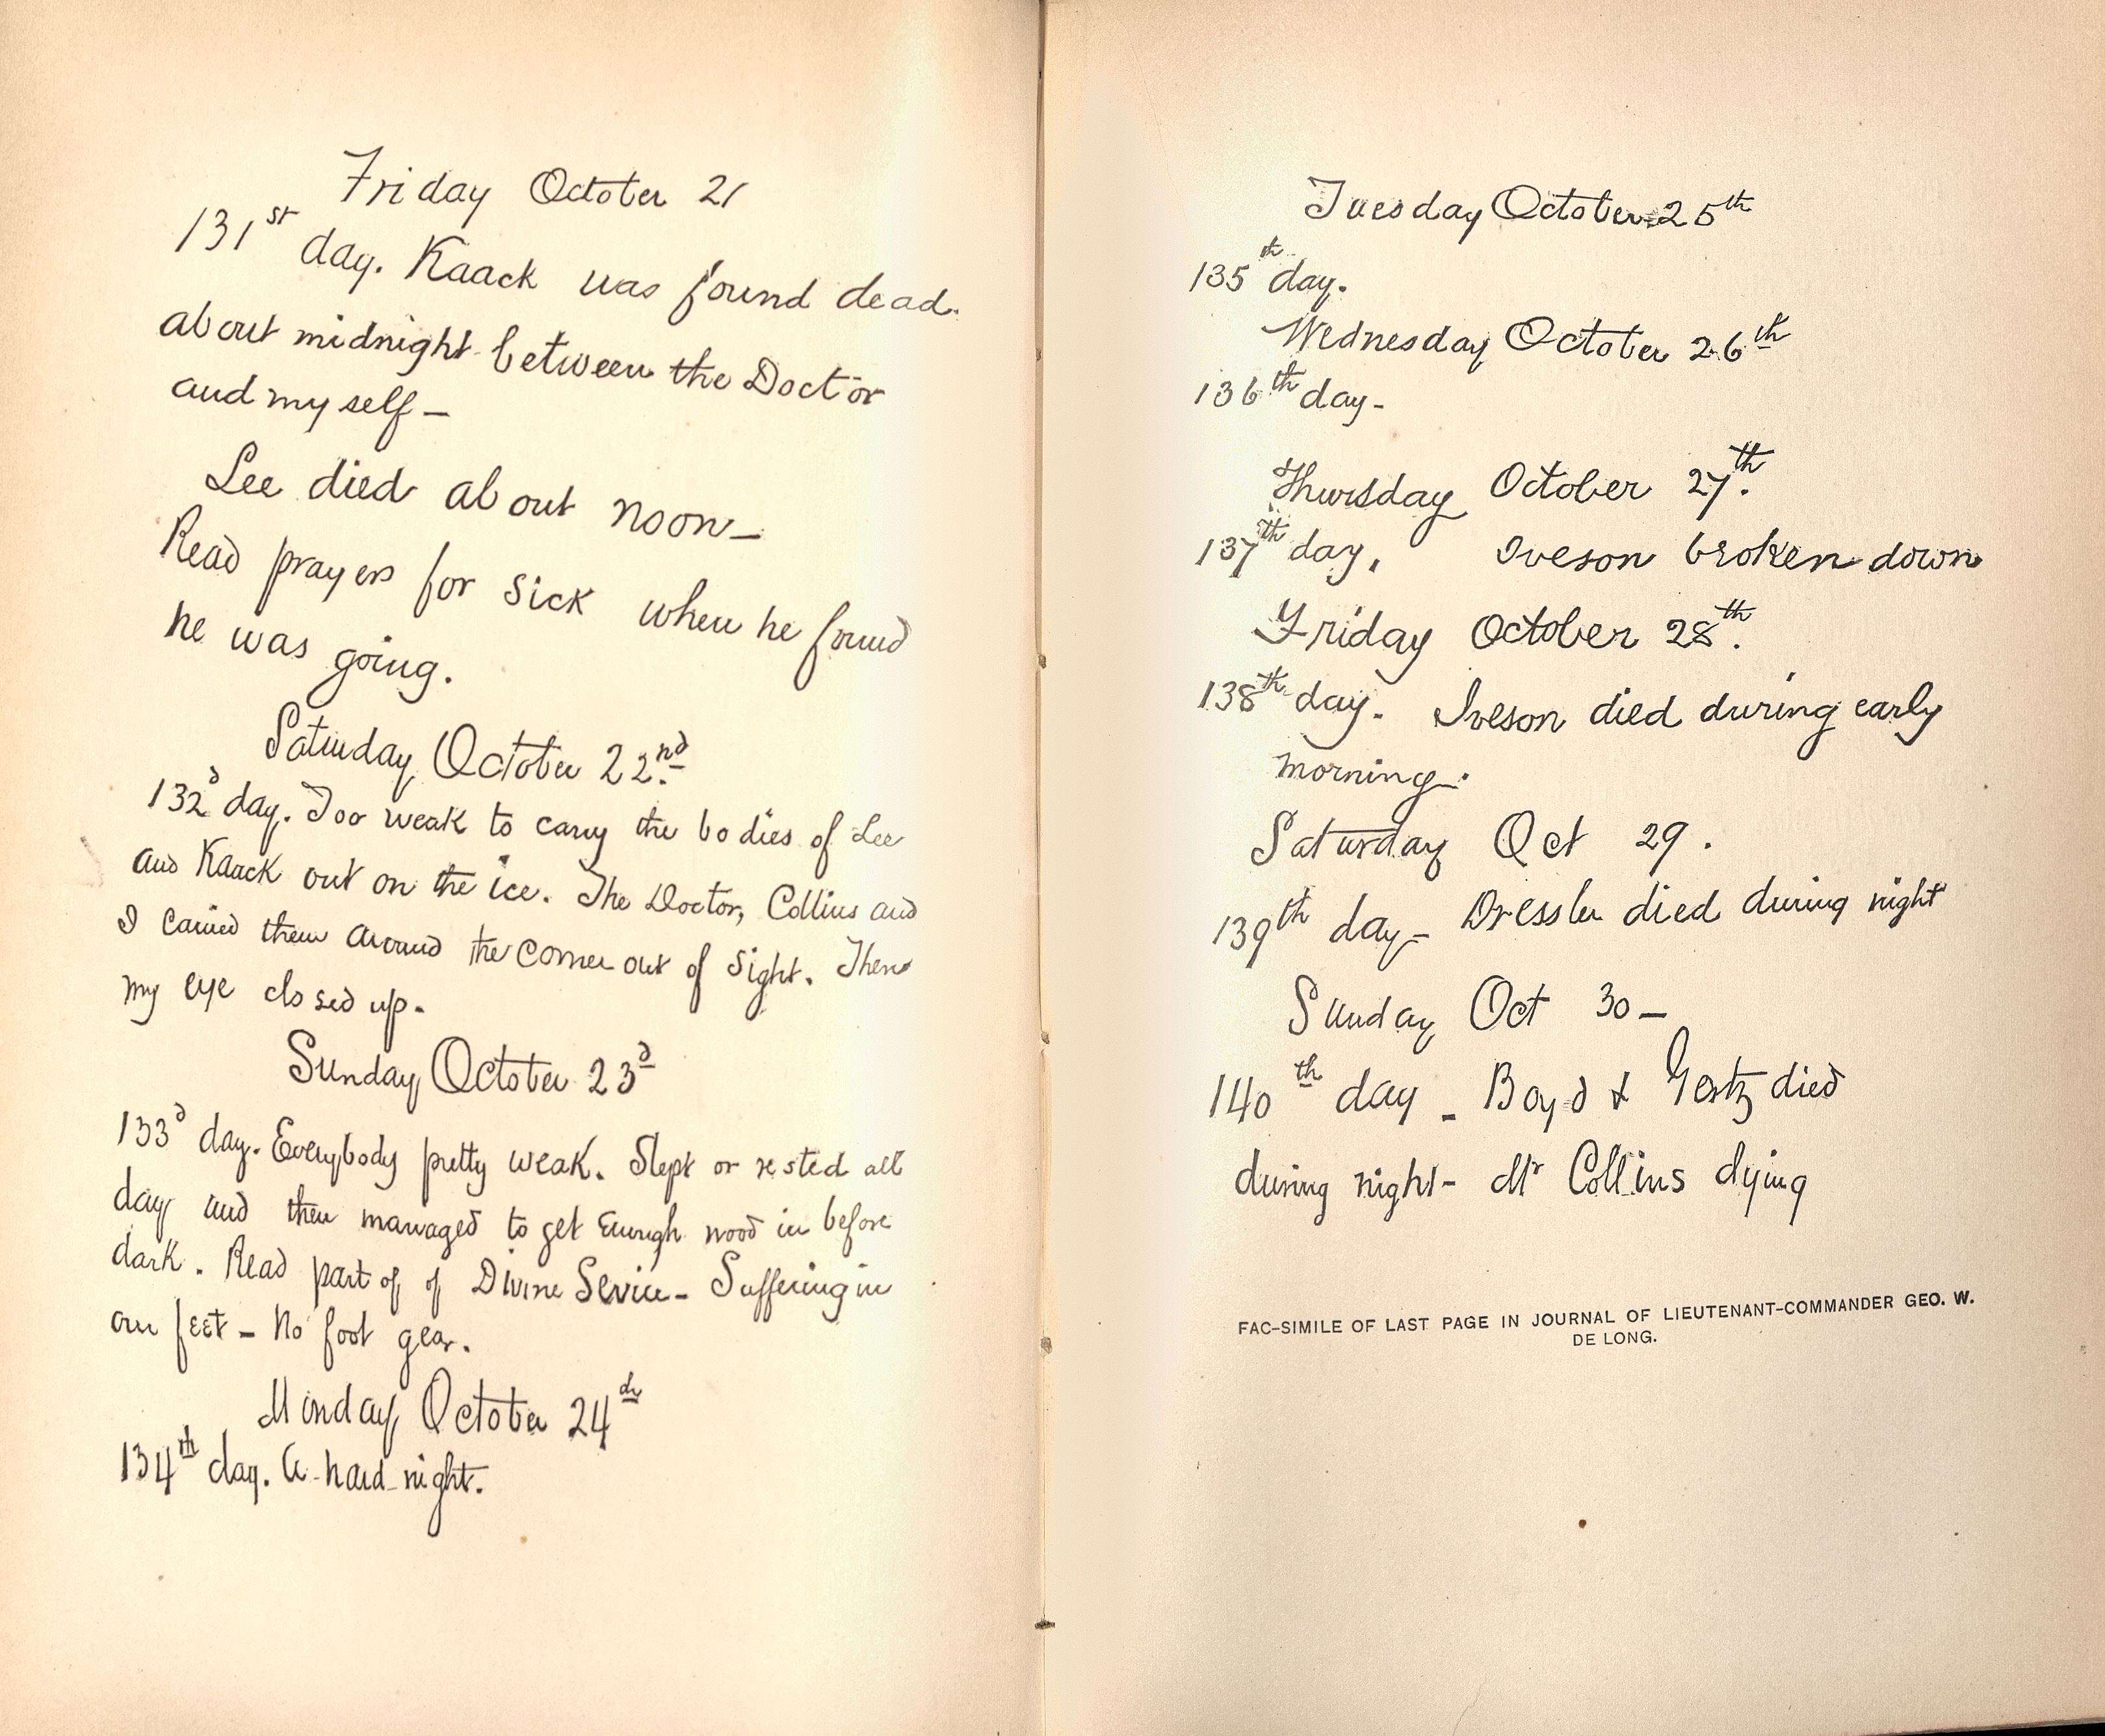 Friday October 21
131st day. Kaack was found dead.
about midnight between the Doctor
and myself—
Lee died about noon—
Read prayers for sick when he found
he was going.
Saturday October 22nd
132d day. Too weak to carry the bodies of Lee
and Kaack out on the ice. The Doctor, Collins and
I carried them around the corner out of sight. Then
my eye closed up.
Sunday October 23d
133d day. Everybody pretty weak. Slept or rested all
day and then managed to get enough wood in before
dark. Read part of of Divine Service— Suffering in
our feet— No foot gear.
Monday October 24th
134th day. A hard night.
Tuesday October 25th
135th day.
Wednesday October 26th
136th day—
Thursday October 27th.
137th day, Iveson broken down
Friday October 28th.
138th day. Iveson died during early
morning—.
Saturday Oct 29.
139th day— Dressler died during night
Sunday Oct 30—
140th day— Boyd & Gortz died
during night— Mr Collins dying
FAC-SIMILE OF LAST PAGE IN JOURNAL OF LIEUTENANT-COMMANDER GEO. W.
DE LONG.